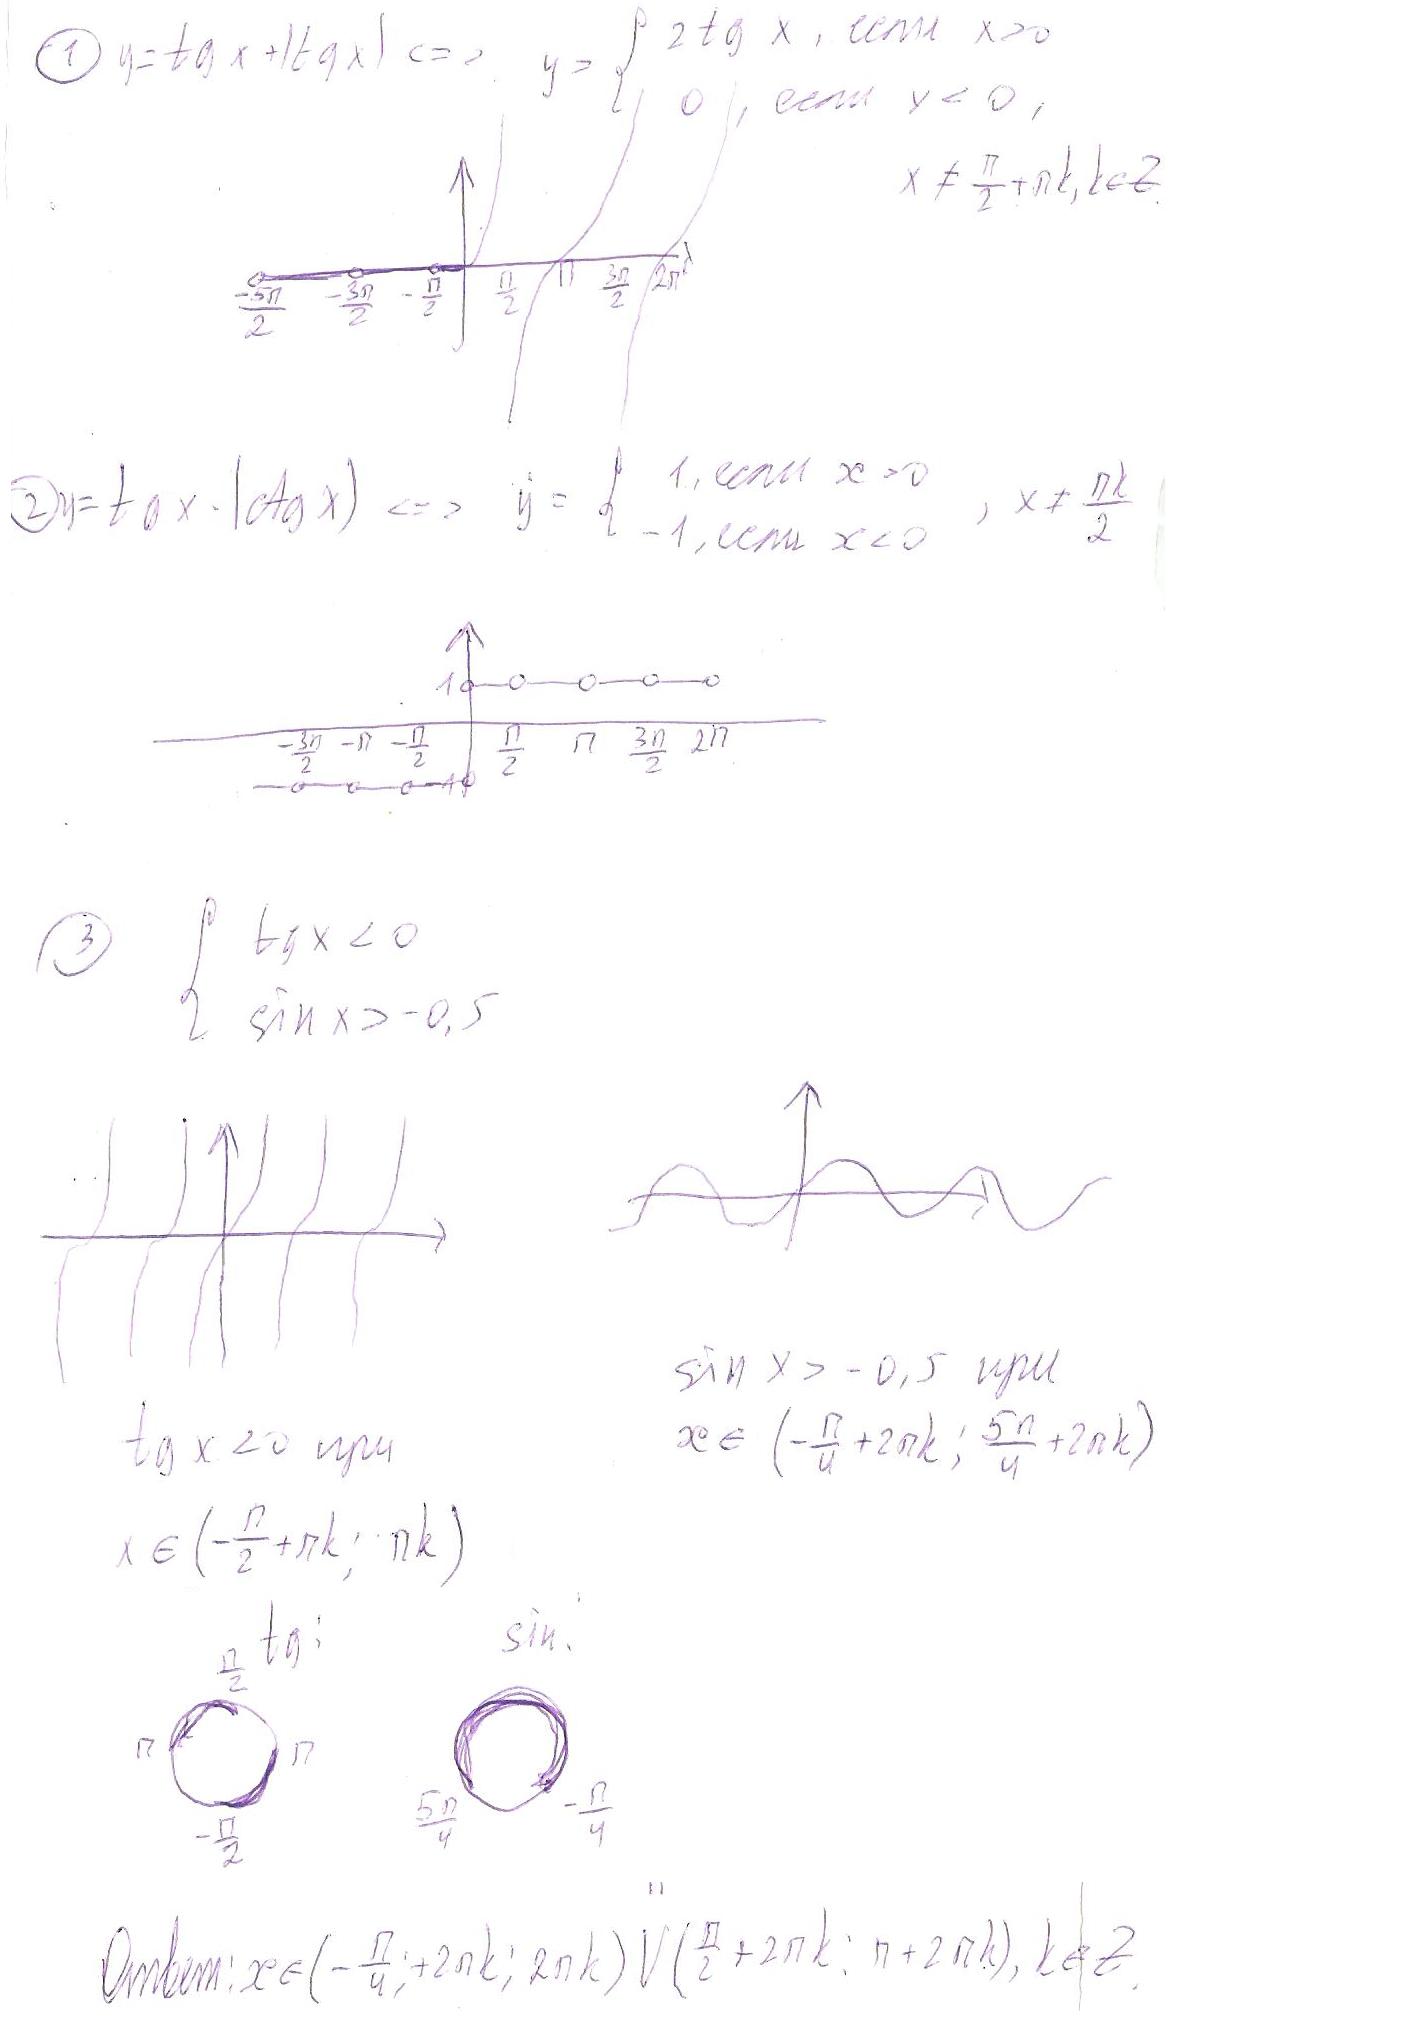 ① y=tg x+|tg x| <=> y= { 2tg x, если x>0
0, если x<0,
x ≠ π/2+πk, k∈Z.
-5π/2 -3π/2 -π/2 π/2 π 3π/2 2π
② y=tg x·|ctg x| <=> y= { 1, если x>0
-1, если x<0 , x≠ πk/2
1
-3π/2 -π -π/2 π/2 π 3π/2 2π
-1
③ { tg x<0
sin x>-0,5
sin x>-0,5 при
tg x<0 при
x∈ (-π/4+2πk; 5π/4+2πk)
x∈(-π/2+πk; πk)
tg: sin:
π/2
π π
5π/4 -π/4
-π/2
Ответ: x∈(-π/4;+2πk; 2πk) V (π/2+2πk; π+2πk), k∈Z.